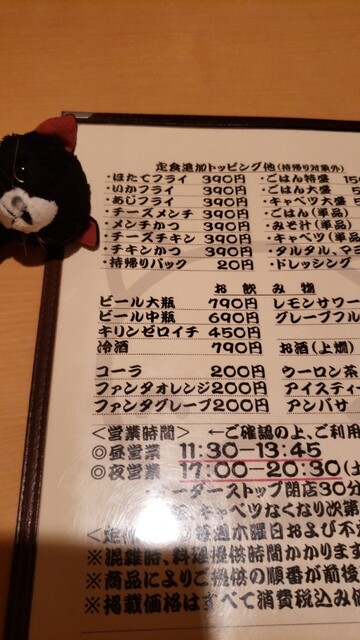 定食追加トッピング他(持帰り対象外)
・ほたてフライ 390円 ・ごはん特盛 15
・いかフライ 390円 ・ごはん大盛
・あじフライ 390円 ・キャベツ大盛 5
・チーズメンチ 390円 ・ごはん(単品)
・メンチかつ 390円 ・みそ汁(単品)
・チーズチキン 390円 ・キャベツ(単
・チキンかつ 390円 ・タルタル、マ
・持帰りパック 20円 ・ドレッシング
お飲み物
ビール大瓶 790円 レモンサワー
ビール中瓶 690円 グレープフル
キリンゼロイチ 450円
冷酒 790円 お酒(上燗)
コーラ 200円 ウーロン茶
ファンタオレンジ 200円 アイスティー
ファンタグレープ 200円 アンバサ
<営業時間> ←ご確認の上、ご利用
◎昼営業 11:30-13:45
◎夜営業 17:00-20:30(土
ーダーストップ閉店30分
キャベツなくなり次第
毎週水曜日および不定
※混雑時、料理提供時間かかります
※商品によりご提供の順番が前後
※掲載価格はすべて消費税込み価